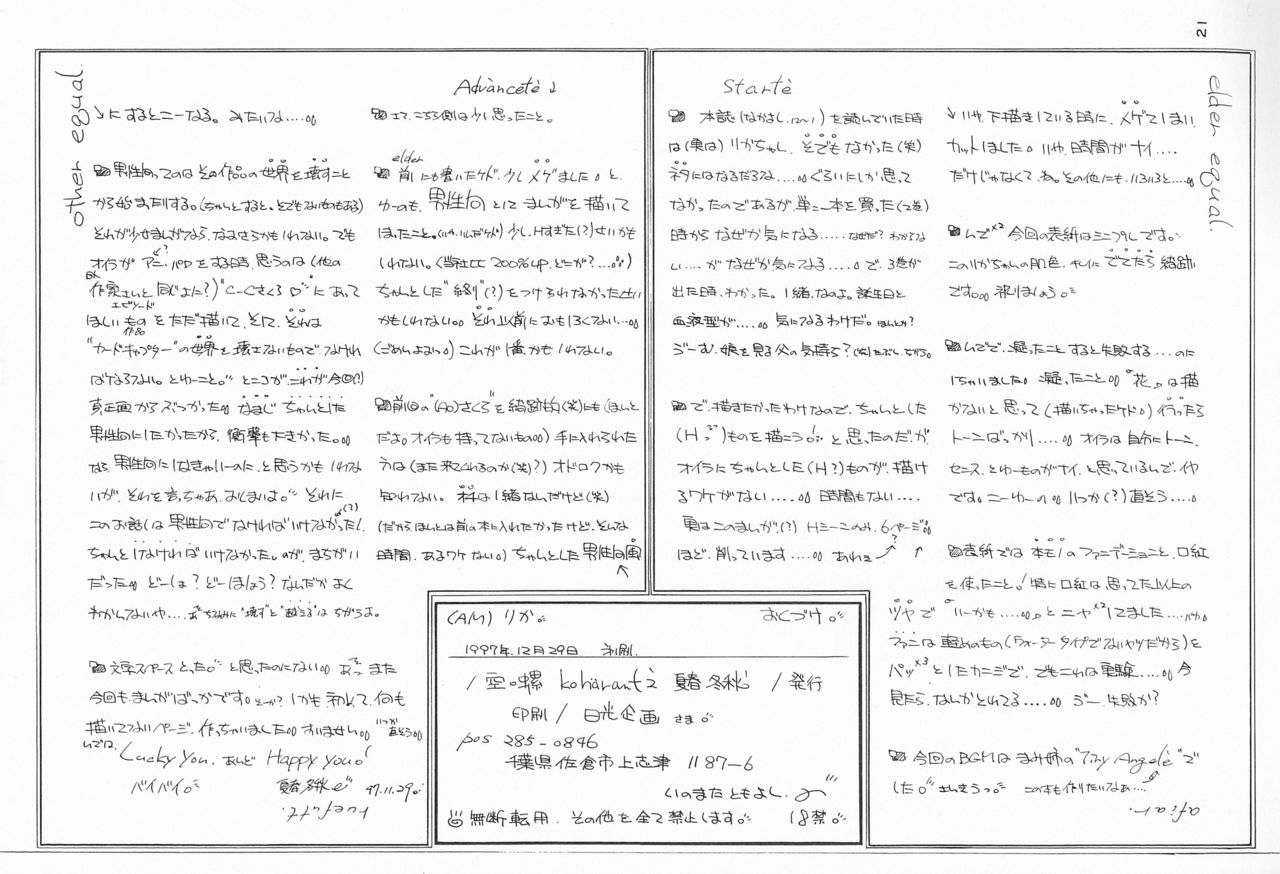 21
Startè
本誌(なかよし.12〜1)を読んでいた時
は(実は)りかちゃん、そでもなかった(笑)
ネタにはなるだろな.....ぐらいにしか思って
なかったのであるが、単こー本を買った(2巻)
時から なぜか気になる..... なぜだ? わからな
い....が なぜか気になる.....で、3巻が
出た時、わかった。一緒、なのよ。誕生日と
血液型が..... 気になるわけだ。ほんとか?
うーむ、娘を見る父の気持ち?(笑)たぶん、ちがう。
で、描きたかったわけなので、ちゃんとした
(H)ものを描こう!と思ったのだが、
オイラにちゃんとした(H?)ものが、描け
るワケがない..... 時間もない....
実はこのまんが(?) Hシーンのみ、6ページ
ほど、削っています..... あれぇ
elder equal.
↓いや、下描きしている時に、メゲてしまい
カットしました。いや、時間がナイ....
だけじゃなくて、ね。その他にも、いろいろと....
んで×2 今回の表紙はミニプレです。
このりかちゃんの肌色、キレイに でてたら 結晶い
です。祈りましょう。
んでで、凝ったことすると失敗する....のに
しちゃいました。凝ったこと 『花』は描
かないと思って(描いちゃったケド)行ったら
トーンばっかし..... オイラは自分にトーン、
センス、とゆーものがナイ、と思っているんで、イヤ
です。こーゆーの いつか(?)直そう....
表紙では 本モノのファンデーションと、口紅
を使ったこと。!特に口紅は思ってた以上の
ツヤで『いーかも....』とニヤ×2してました....バカ
ファンは軽めのもの(ウォータータイプでないヤツだから)を
パッ×3 としたカンジで、でもこれは実験.....今
見たら、なんかとれてる..... うー、失敗か?
今回のBGMは まみ姉の"Tiny Angelè"で
した。さんきうっ この本も作りたいなぁ....
afiar.
Advàncetè 2
さて、こちら側は少し思ったこと。
elder
前にも書いたケド、少しメゲました。と
ゆーのも、男性向としてまんがを描いて
しまったこと。(いや、いんだケド)少し、Hすぎた(?)せいかも
しれない。(当社比 200%up. どこが?....)
ちゃんとした"終り"(?)をつけられなかったせい
かもしれない。それ以前におもしろくない...
(ごめんよぉっ)これが1番、かもしれない。
前回の"(Ao)さくら"を結晶的(笑)にも(ほんと
だよ。オイラも持ってないもの)手に入れられた
方は(また来てくれるのか(笑)?)オドロクかも
知れない。
(だから、ほんとは前の本に入れたかったけど、そんな
時間、あるワケない。)ちゃんとした 男性向画
other equal.
↓にするとこーなる。みたいな.....
男性向ってのは その作品の世界を壊すこと
から始まったりする。(ちゃんとすると、とてもないものもある)
それが少女まんがなら、なおさらかもしれない。でも
オイラが アニ、パロをする時、思うのは(他の
作家さんと同じよに?)"C-Cさくら"にあって
ほしいもの を ただ描いて、そして、それは
エピソード
作品
"カードキャプター"の世界を壊さないもので、なけれ
ばならない。とゆーこと。ところが、これが今回(?)
真正面からぶつかった。なまじ ちゃんとした
男性向にしたかったから、衝撃も大きかった。
なら、男性向にしなきゃいーのに、と思うかもしれな
いが、それを言っちゃあ、おしまいよ。それに
このお話しは男性向でなければいけなかった(?)
ちゃんとしなければ いけなかった。のが、まちがい
だった。どーしょ?どーしましょう?なんだか よく
わかんないや.... あ、ちなみに"壊す"と"越える"は ちがうよ。
文字スペース とった と思ったのにない あっ また
今回も、まんがばっかです。そーか?しかも 初めて、何も
描いてないページ、作っちゃいました。すいません。いつか直そう
んでは。
Lucky You. あんど Happy you!
バイバイ。 夏春冬秋 97.11.29.
(AM)りか。 おくづけ。
1997年.12月29日 初刷.
/空。螺 kohàrantè 夏春冬秋 /発行
印刷/ 日光企画 さま。
pos 285-0846
千葉県佐倉市上志津 1187-6
いのまた ともよし.
無断転用、その他を全て禁止します。 18禁。